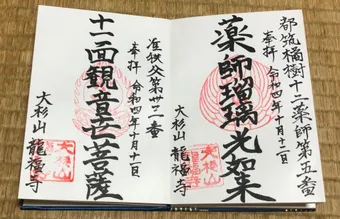 都筑橘樹十二薬師第五番
奉拝 令和四年十月十二日
薬師瑠璃光如来
大杉山 龍福寺
准秩父第卅二番
奉拝 令和四年十月十二日
十一面観世音菩薩
大杉山 龍福寺